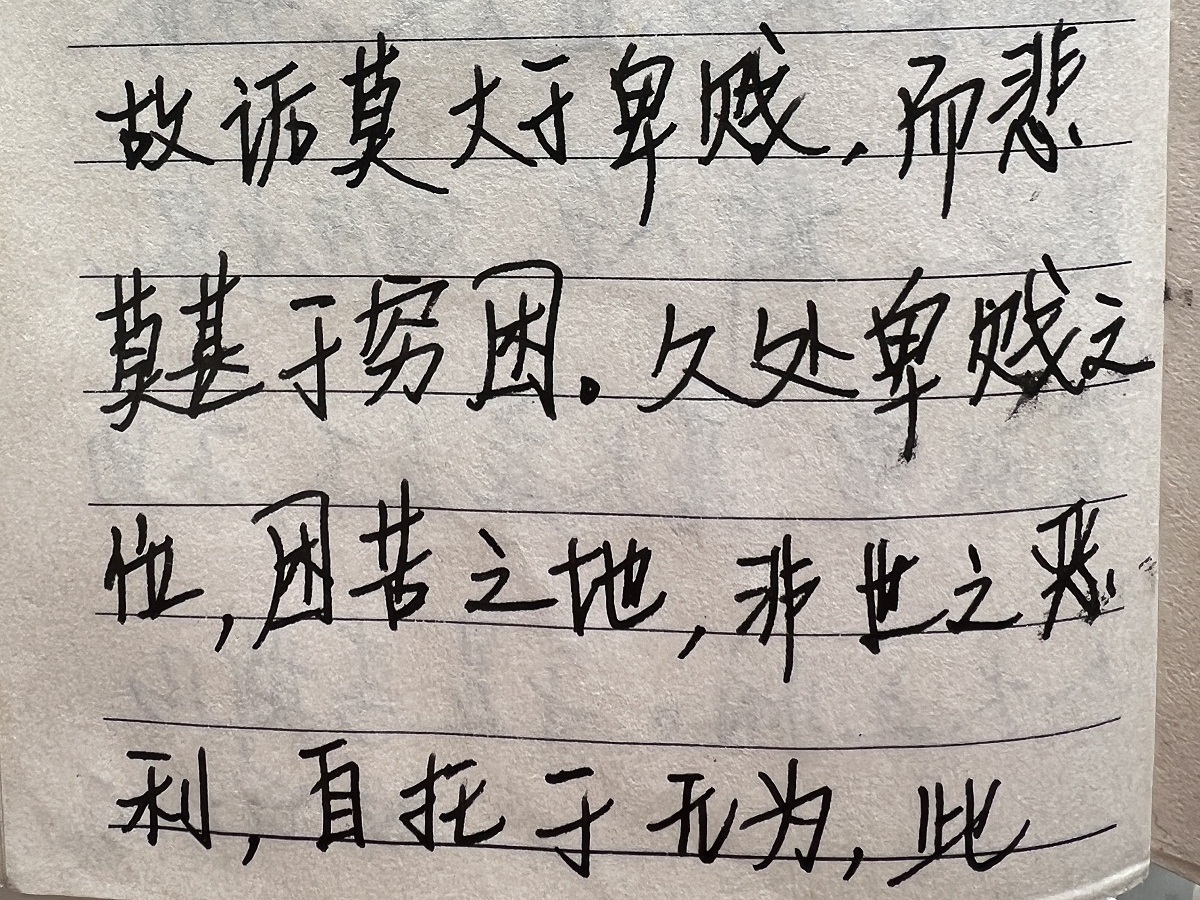 故诟莫大于卑贱，而悲
莫甚于穷困。久处卑贱之
位，困苦之地，非世之恶
利，自托于无为，此